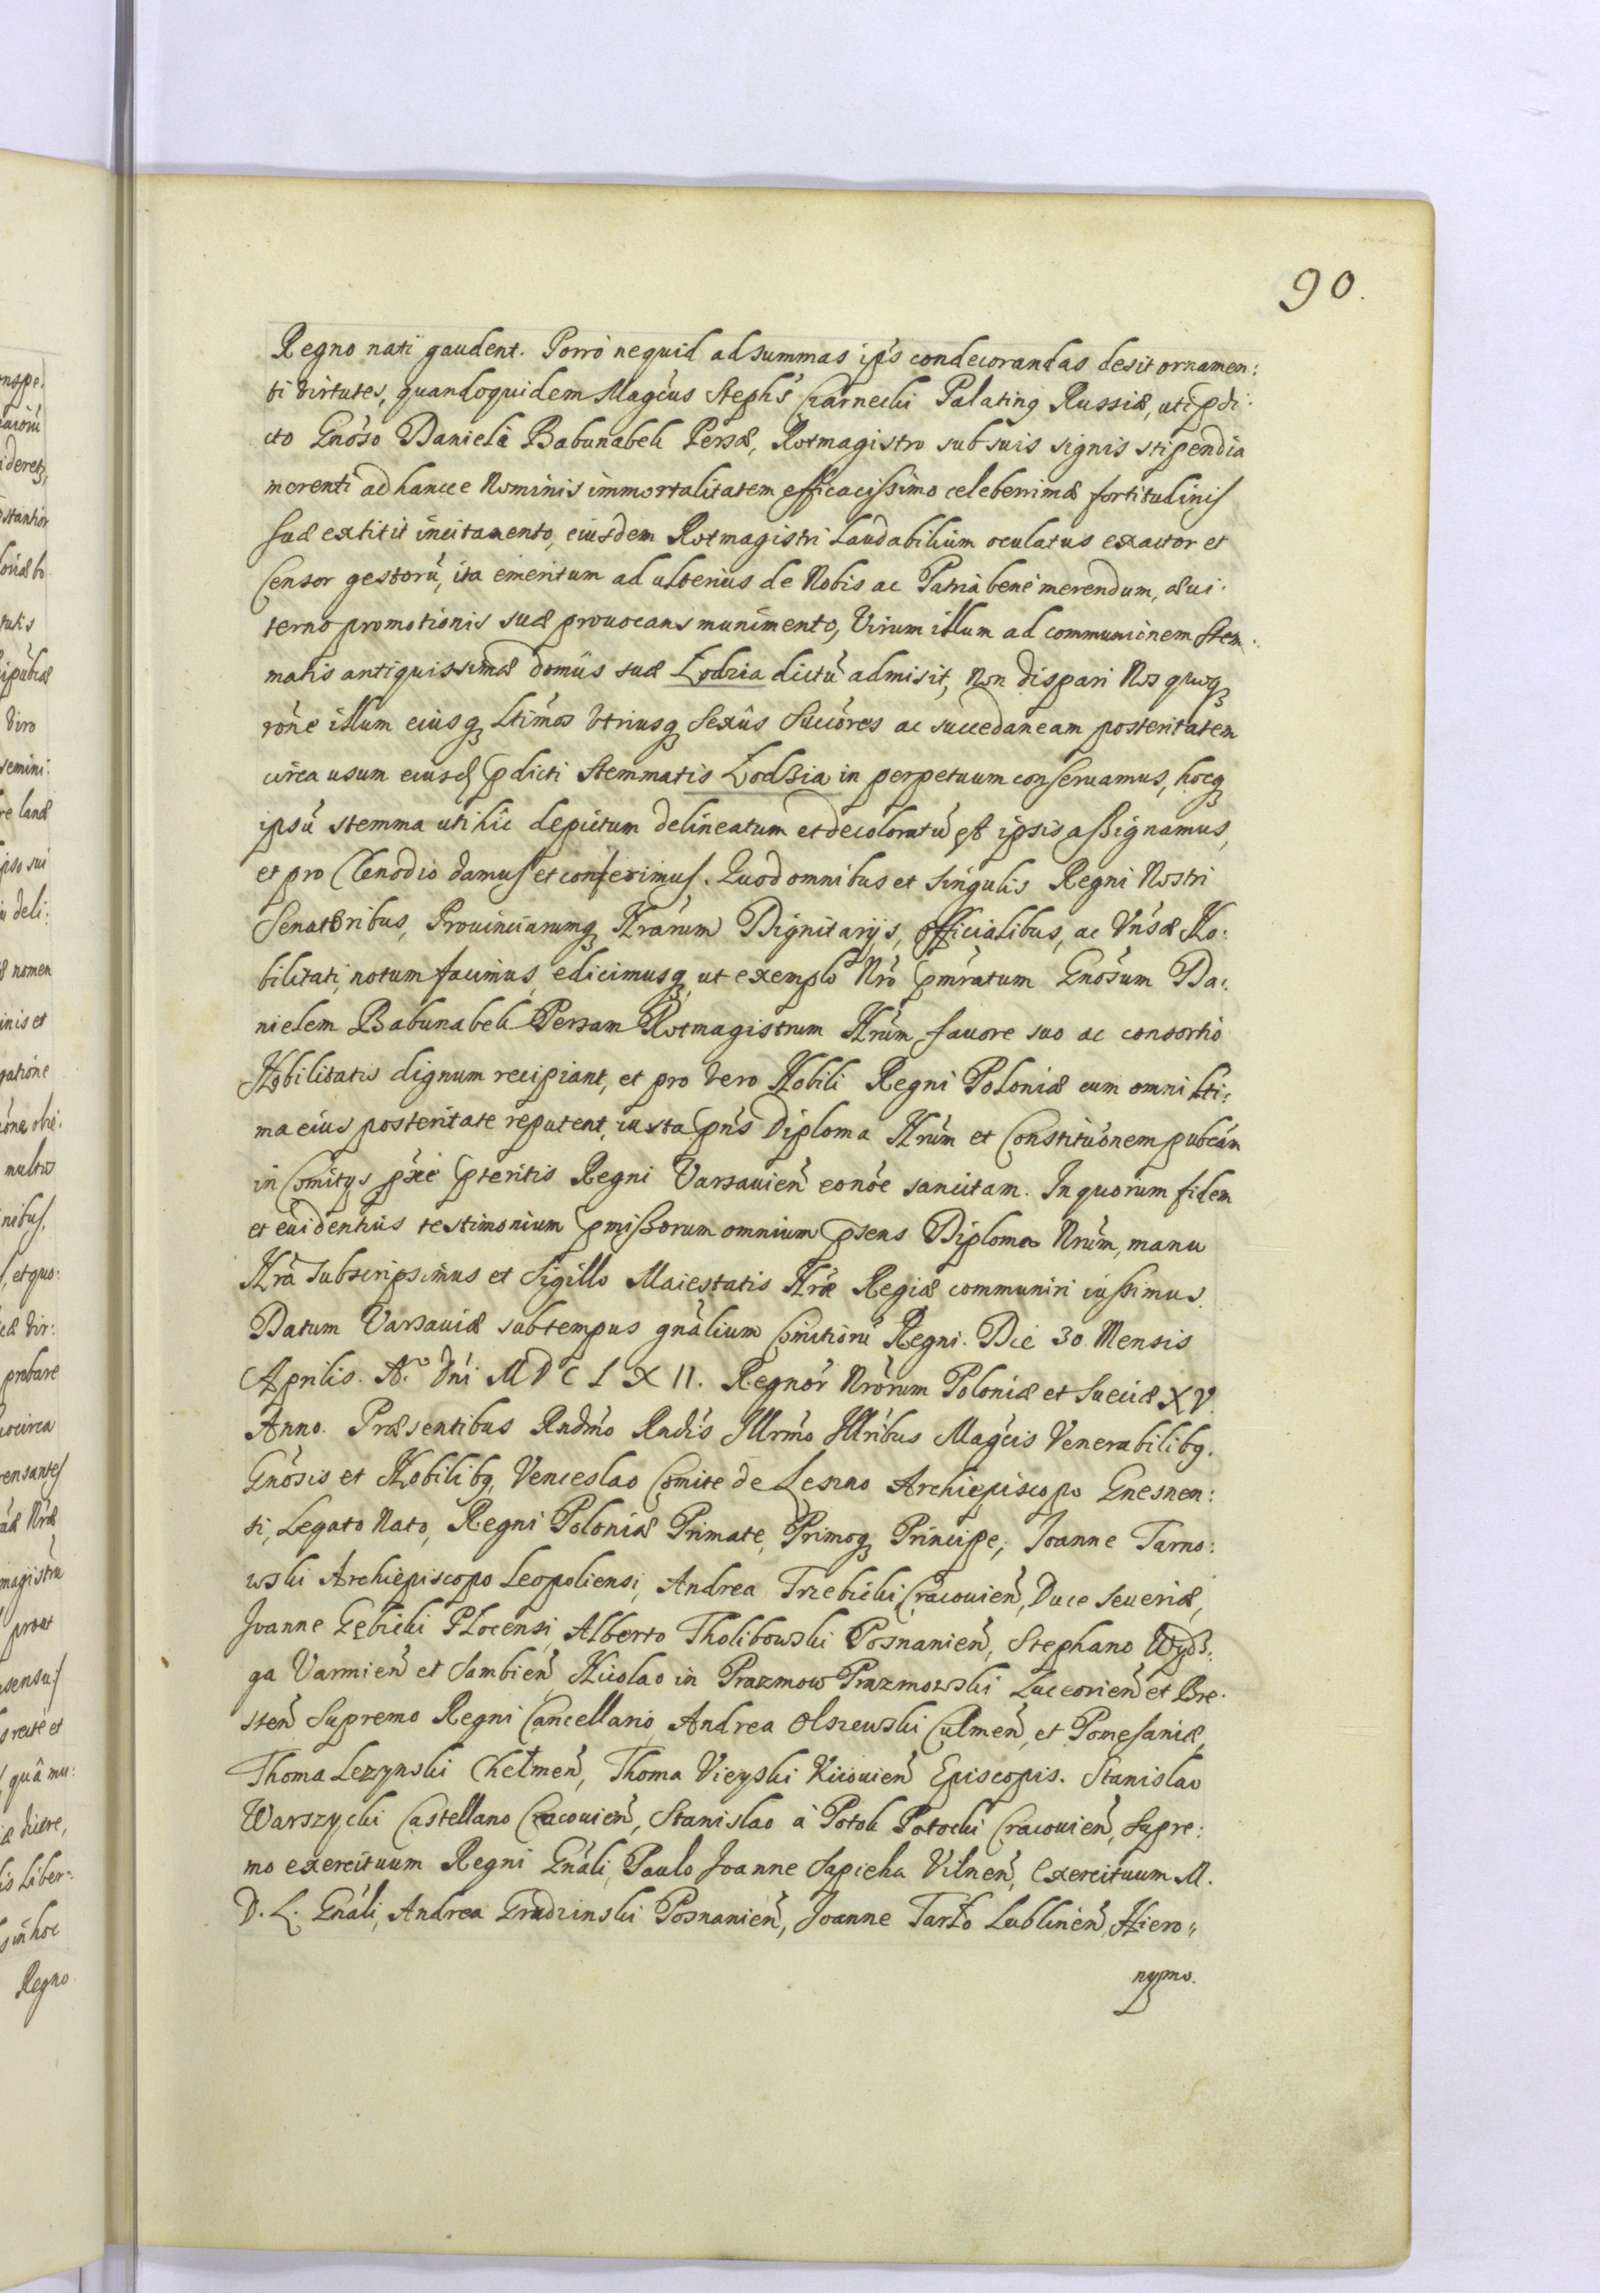 90.
Regno nati gaudent. Porrò nequid ad summas ip̃s condecorandas desit ornamen:
ti virtutes, quandoquidem Magc̃us Steph̃s Czarnecki Palatinꝯ Russiæ, uti p̃di:
cto Gnõso Danieli Babunabek Persæ, Rotmagistro sub suis signis stipendia
merenti ad hancce Nominis immortalitatem efficacißimo celeberrimæ fortitudinis
suæ extitit incitamento, eiusdem Rotmagistri Laudabilium oculatus exactor et
Censor gestorũ, ita emeritum ad ulterius de Nobis ac Patria bene merendum, æui:
terno promotionis suæ prouocans munimento, Virum illum ad communionem Stem:
matis antiquissimæ domûs suæ Łodzia dictũ admisit, Non dispari Nos quoqꝫ
rõne illum eiusqꝫ Ltimos Vtriusqꝫ Sexûs Succõres ac succedaneam posteritatem
circa usum eiusd p̃dicti Stemmatis Łodzia in perpetuum conseruamus, hocqꝫ
ipsũ stemma uti hic depictum delineatum et decoloratũ est ipsis aßignamus,
et pro Clenodio damus et conferimus. Quod omnibus et singulis Regni Nostri
Senatoribus, Prouinciarumqꝫ Nrãrum Dignitarijs, Officialibus, ac Vnisæ No:
bilitati, notum facimus, edicimusqꝫ, ut exemplo Nrõ p̃mratum Gnõsum Da:
nielem Babunabek Persam Rotmagistrum Nrũm fauore suo ac consortio
Nobilitatis dignum recipiant, et pro vero Nobili Regni Poloniæ cum omni Lti:
ma eius posteritate reputent, iuxta p̃ns Diploma Nrũm et Constituõnem pubcãm
in Comitys p̃xe p̃teritis Regni Varsauieñ eonõe sancitam. In quorum fidem
et euidentius testimonium p̃mißorum omnium p̃sens Diploma Nrũm, manu
Nrã subscripsimus et Sigillo Maiestatis Nræ Regiæ communiri iußimus.
Datum Varsauiæ sub tempus gnãlium Comitiorũ Regni. Die 30 Mensis
Aprilis. Aº. Dñi M D C L X II. Regnor̃ Nrõrum Poloniæ et Sueciæ XV.
Anno. Præsentibus Rndmõ Rndĩs Illrmõ Illribus Magcis Venerabilibꝯ.
Gnõsis et Nobilibꝯ, Venceslao Comite de Leszno Archiepiscopo Gnesnen:
si, Legato Nato, Regni Poloniæ Primate, Primoqꝫ Principe, Joanne Tarno:
wski Archiepiscopo Leopoliensi, Andrea Trzebicki Cracouieñ, Duce Seueriæ,
Joanne Gębicki Plocensi, Alberto Tholibowski Posnanieñ, Stephano Wydż:
ga Varmieñ et Sambieñ, Nicolao in Prazmow Prazmowski Luceorieñ et Bre:
steñ Supremo Regni Cancellario, Andrea Olszewski Culmeñ, et Pomesaniæ,
Thoma Lezynski Chełmeñ, Thoma Vieyski Kiiouieñ Episcopis. Stanislao
Warszycki Castellano Cracouieñ, Stanislao à Potok Potocki Cracouieñ, Supre:
mo exercituum Regni Gnãli, Paulo Joanne Sapieha Vilneñ, Exercituum M.
D. L. Gnãli, Andrea Grudzinski Posnanieñ, Joanne Tarło Lublineñ, Hiero:
nymo.